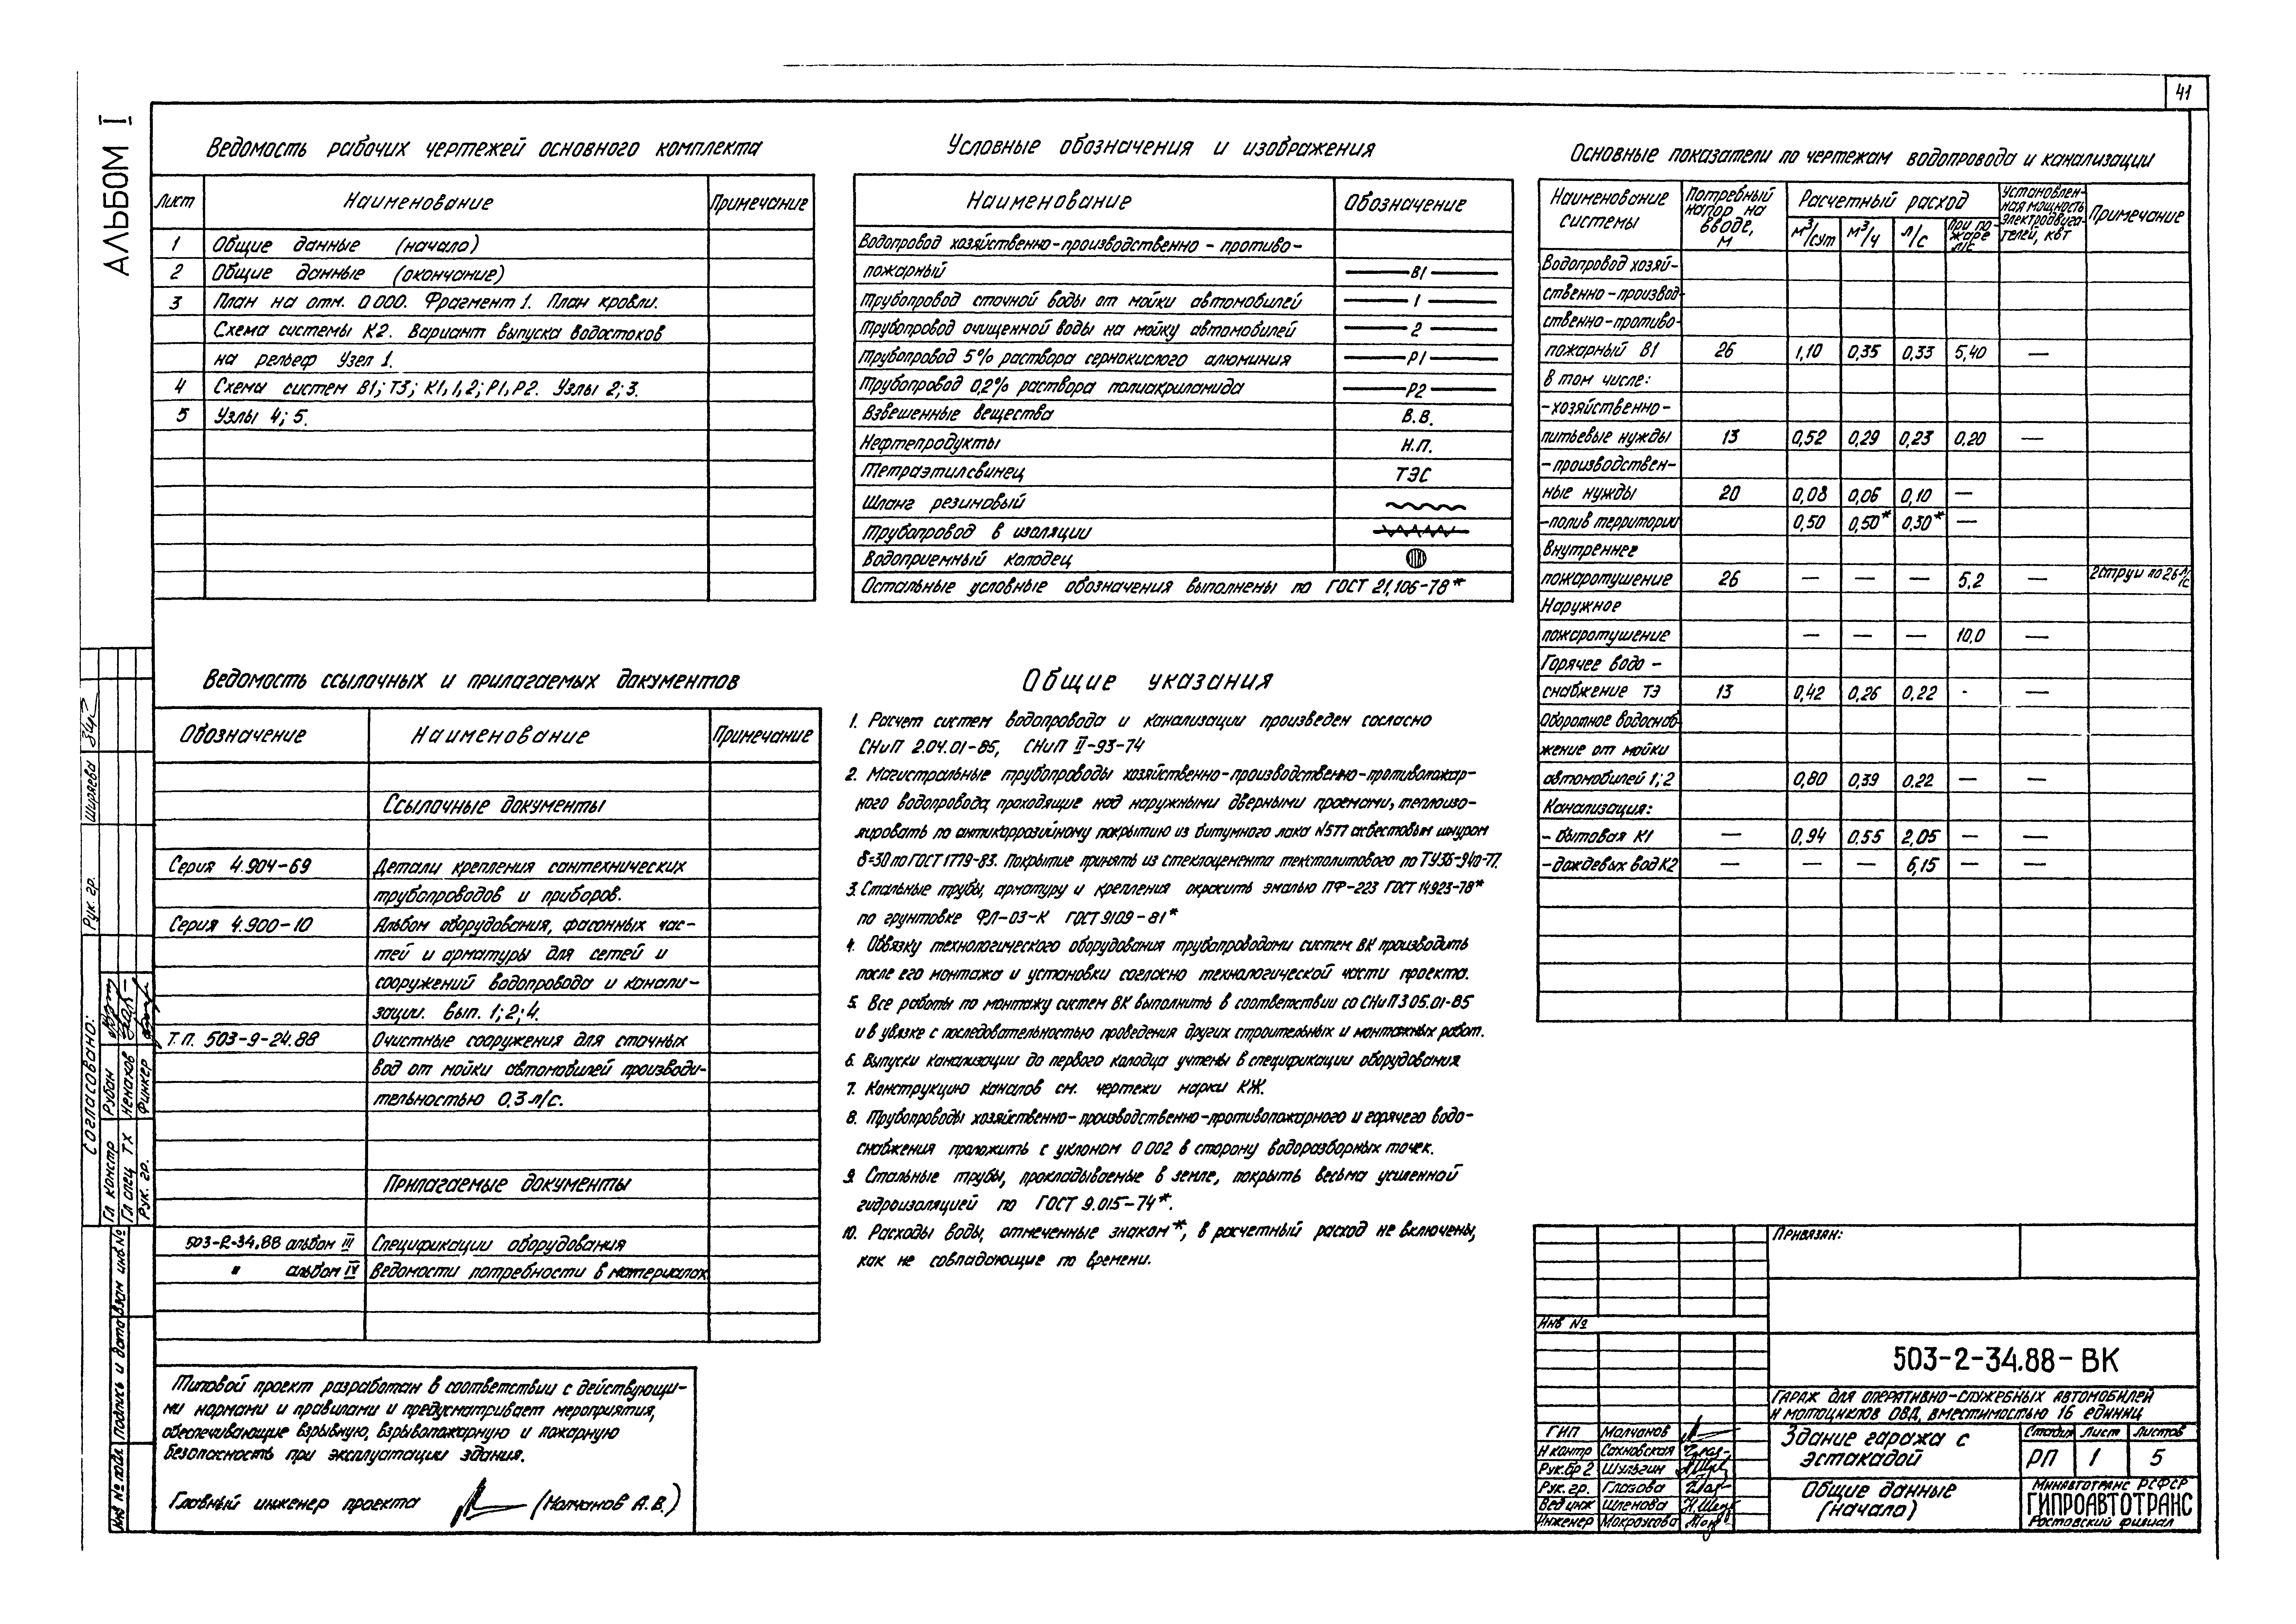 41
АЛЬБОМ I
Ведомость рабочих чертежей основного комплекта
Лист Наименование Примечание
1 Общие данные (начало)
2 Общие данные (окончание)
3 План на отм. 0.000. Фрагмент 1. План кровли.
Схема системы К2. Вариант выпуска водостоков
на рельеф Узел 1.
4 Схемы систем В1; Т3; К1, 1, 2; Р1, Р2. Узлы 2; 3.
5 Узлы 4; 5.
Условные обозначения и изображения
Наименование Обозначение
Водопровод хозяйственно-производственно-противо-
пожарный В1
Трубопровод сточной воды от мойки автомобилей 1
Трубопровод очищенной воды на мойку автомобилей 2
Трубопровод 5% раствора сернокислого алюминия Р1
Трубопровод 0,2% раствора полиакриламида Р2
Взвешенные вещества В.В.
Нефтепродукты Н.П.
Тетраэтилсвинец ТЭС
Шланг резиновый
Трубопровод в изоляции
Водоприемный колодец
Остальные условные обозначения выполнены по ГОСТ 21.106-78*
Основные показатели по чертежам водопровода и канализации
Наименование системы Потребный напор на вводе, м Расчетный расход Установлен-ная мощность электродвига-телей, кВт Примечание
м³/сут м³/ч л/с При по-жаре л/с
Водопровод хозяй-
ственно-производ-
ственно-противо-
пожарный В1 26 1,10 0,35 0,33 5,40 —
В том числе:
-хозяйственно-
питьевые нужды 13 0,52 0,29 0,23 0,20 —
-производствен-
ные нужды 20 0,08 0,06 0,10 —
-полив территории 0,50 0,50* 0,30* —
Внутреннее
пожаротушение 26 — — — 5,2 — 2 струи по 2.6 л/с
Наружное
пожаротушение — — — 10,0 —
Горячее водо-
снабжение ТЭ 13 0,42 0,26 0.22 - —
Оборотное водоснаб-
жение от мойки
автомобилей 1; 2 0,80 0,39 0.22 — —
Канализация:
- бытовая К1 — 0,94 0.55 2,05 — —
-дождевых вод К2 — — — 6,15 — —
Ведомость ссылочных и прилагаемых документов
Обозначение Наименование Примечание
Ссылочные документы
Серия 4.904-69 Детали крепления сантехнических
трубопроводов и приборов.
Серия 4.900-10 Альбом оборудования, фасонных час-
тей и арматуры для сетей и
сооружений водопровода и канали-
зации. Вып. 1; 2; 4.
Т.п. 503-9-24.88 Очистные сооружения для сточных
вод от мойки автомобилей производи-
тельностью 0,3 л/с.
Прилагаемые документы
503-2-34.88 альбом III Спецификации оборудования
" альбом IV Ведомости потребности в материалах
Общие указания
1. Расчет систем водопровода и канализации произведен согласно
СНиП 2.04.01-85, СНиП II-93-74
2. Магистральные трубопроводы хозяйственно-производственно-противопожар-
ного водопровода, проходящие над наружными дверными проемами, теплоизо-
лировать по антикоррозийному покрытию из битумного лака N577 асбестовым шнуром
δ=30 по ГОСТ 1779-83. Покрытие принять из стеклоцемента текстолитового по ТУ36-940-77.
3. Стальные трубы, арматуру и крепления окрасить эмалью ПФ-223 ГОСТ 14923-78*
по грунтовке ФЛ-03-К ГОСТ 9109-81*
4. Обвязку технологического оборудования трубопроводами систем ВК производить
после его монтажа и установки согласно технологической части проекта.
5. Все работы по монтажу систем ВК выполнить в соответствии со СНиП 3 05.01-85
и в увязке с последовательностью проведения других строительных и монтажных работ.
6. Выпуски канализации до первого колодца учтены в спецификации оборудования
7. Конструкцию каналов см. чертежи марки КЖ.
8. Трубопроводы хозяйственно-производственно-противопожарного и горячего водо-
снабжения проложить с уклоном 0 002 в сторону водоразборных точек.
9. Стальные трубы, прокладываемые в земле, покрыть весьма усиленной
гидроизоляцией по ГОСТ 9.015-74*.
10. Расходы воды, отмеченные знаком*, в расчетный расход не включены,
как не совпадающие по времени.
Типовой проект разработан в соответствии с действующи-
ми нормами и правилами и предусматривает мероприятия,
обеспечивающие взрывную, взрывопожарную и пожарную
безопасность при эксплуатации здания.
Главный инженер проекта (Молчанов А.В.)
Согласовано:
Гл констр Рубан
Гл спец ТХ Ненахов
Рук. гр. Финкер
Рук. гр. Ширяева
Инв № подл Подпись и дата Взам инв №
Привязан:
Инв №
503-2-34.88-ВК
Гараж для оперативно-служебных автомобилей
и мотоциклов ОВД, вместимостью 16 единиц
ГИП Молчанов
Н контр Сахновская
Рук.бр 2 Шульгин
Рук. гр. Глазова
Вед инж Шленова
Инженер Мокроусова
Здание гаража с
эстакадой
Стадия Лист Листов
РП 1 5
Общие данные
(начало)
Минавтотранс РСФСР
ГИПРОАВТОТРАНС
Ростовский филиал